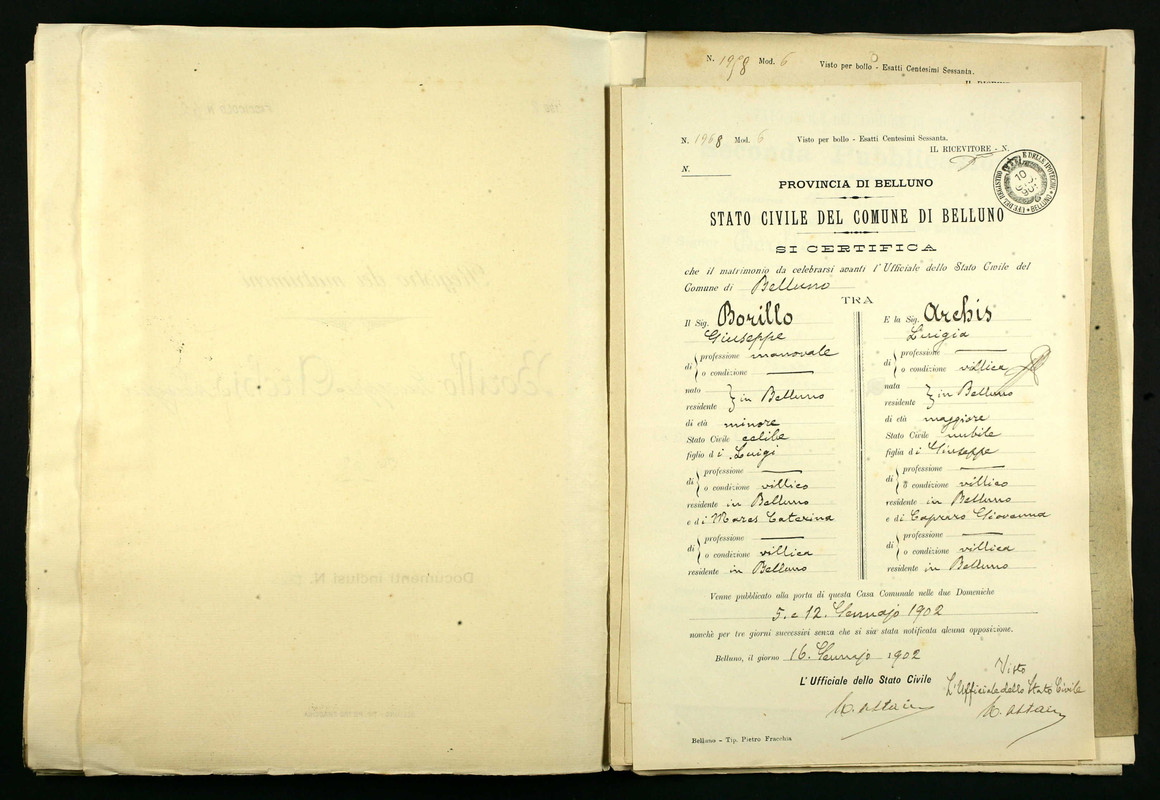 N. 1978 Mod. 6 Visto per bollo - Esatti Centesimi Sessanta.
N. 1968 Mod. 6 Visto per bollo - Esatti Centesimi Sessanta.
IL RICEVITORE - N.
N.
PROVINCIA DI BELLUNO
STATO CIVILE DEL COMUNE DI BELLUNO
SI CERTIFICA
che il matrimonio da celebrarsi avanti l'Ufficiale dello Stato Civile del
Comune di Belluno
TRA
Il Sig. Borillo
Giuseppe
di professione manovale
o condizione
nato
residente in Belluno
di età minore
Stato Civile celibe
figlio di Luigi
di professione
o condizione villico
residente in Belluno
e di Mares Caterina
di professione
o condizione villica
residente in Belluno
E la Sig. Archis
Luigia
di professione
o condizione villica
nata
residente in Belluno
di età maggiore
Stato Civile nubile
figlia di Giuseppe
di professione
o condizione villico
residente in Belluno
e di Capraro Giovanna
di professione
o condizione villica
residente in Belluno
Venne pubblicato alla porta di questa Casa Comunale nelle due Domeniche
5. e 12. Gennajo 1902
nonchè per tre giorni successivi senza che si sia stata notificata alcuna opposizione.
Belluno, il giorno 16. Gennajo 1902
L'Ufficiale dello Stato Civile
Visto
L'Ufficiale dello Stato Civile
Belluno - Tip. Pietro Fracchia